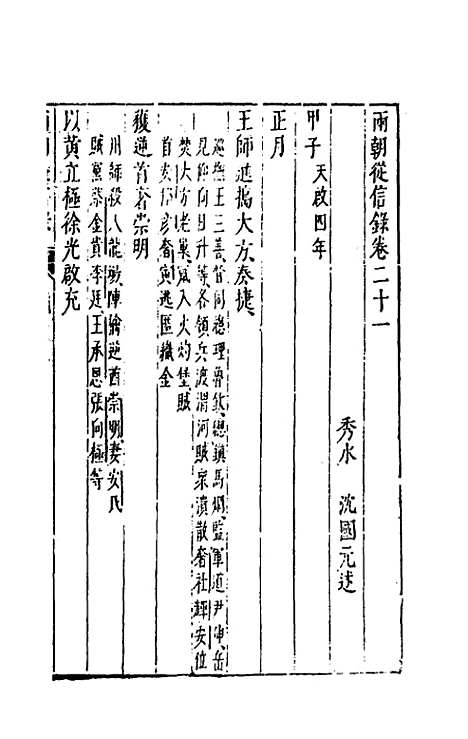 兩朝從信錄卷二十一
秀水 沈國元述
甲子 天啟四年
正月
王師進搗大方奏捷
巡撫王三善督同總理魯欽總鎮馬炯監軍道尹伸岳
見仰向日升等各領兵渡渭河賊眾潰散奢社輝安位
焚大方老巢竄入火灼堡賊
首安邦彥奢寅逃匿織金
獲逆首奢崇明
川師殺入龍場陣擒逆酋崇明妻安氏
賊黨蔡金貴李廷王承恩張向極等
以黃立極徐光啟充